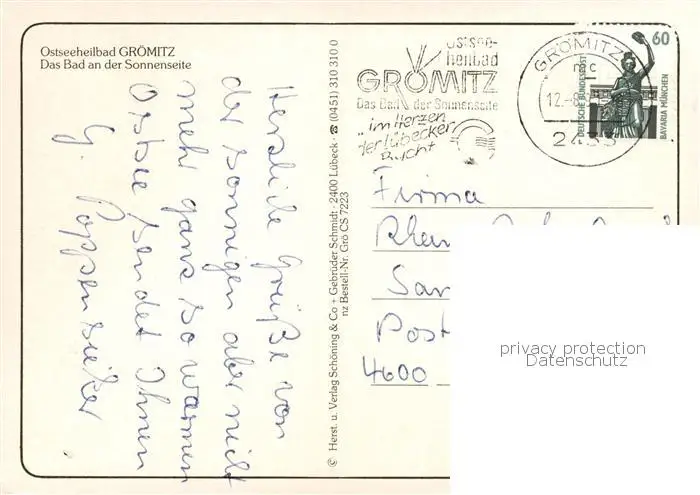 Ostseeheilbad GRÖMITZ
Das Bad an der Sonnenseite
Herzliche Grüße von
der sonnigen aber nicht
mehr ganz so warmen
Ostsee sendet Ihnen
G. Poppensieker
© Herst. u. Verlag Schöning & Co + Gebrüder Schmidt · 2400 Lübeck · ☎ (0451) 310 310 0
nz Bestell-Nr. Grö CS 7223
Ostsee-
heilbad
GRÖMITZ
Das Bad der Sonnenseite
"im Herzen
der lübecker
Bucht
GRÖMITZ
mc
12.-8.
2433
60
DEUTSCHE BUNDESPOST
BAVARIA MÜNCHEN
Firma
Rhein
Post
4600
privacy protection
Datenschutz